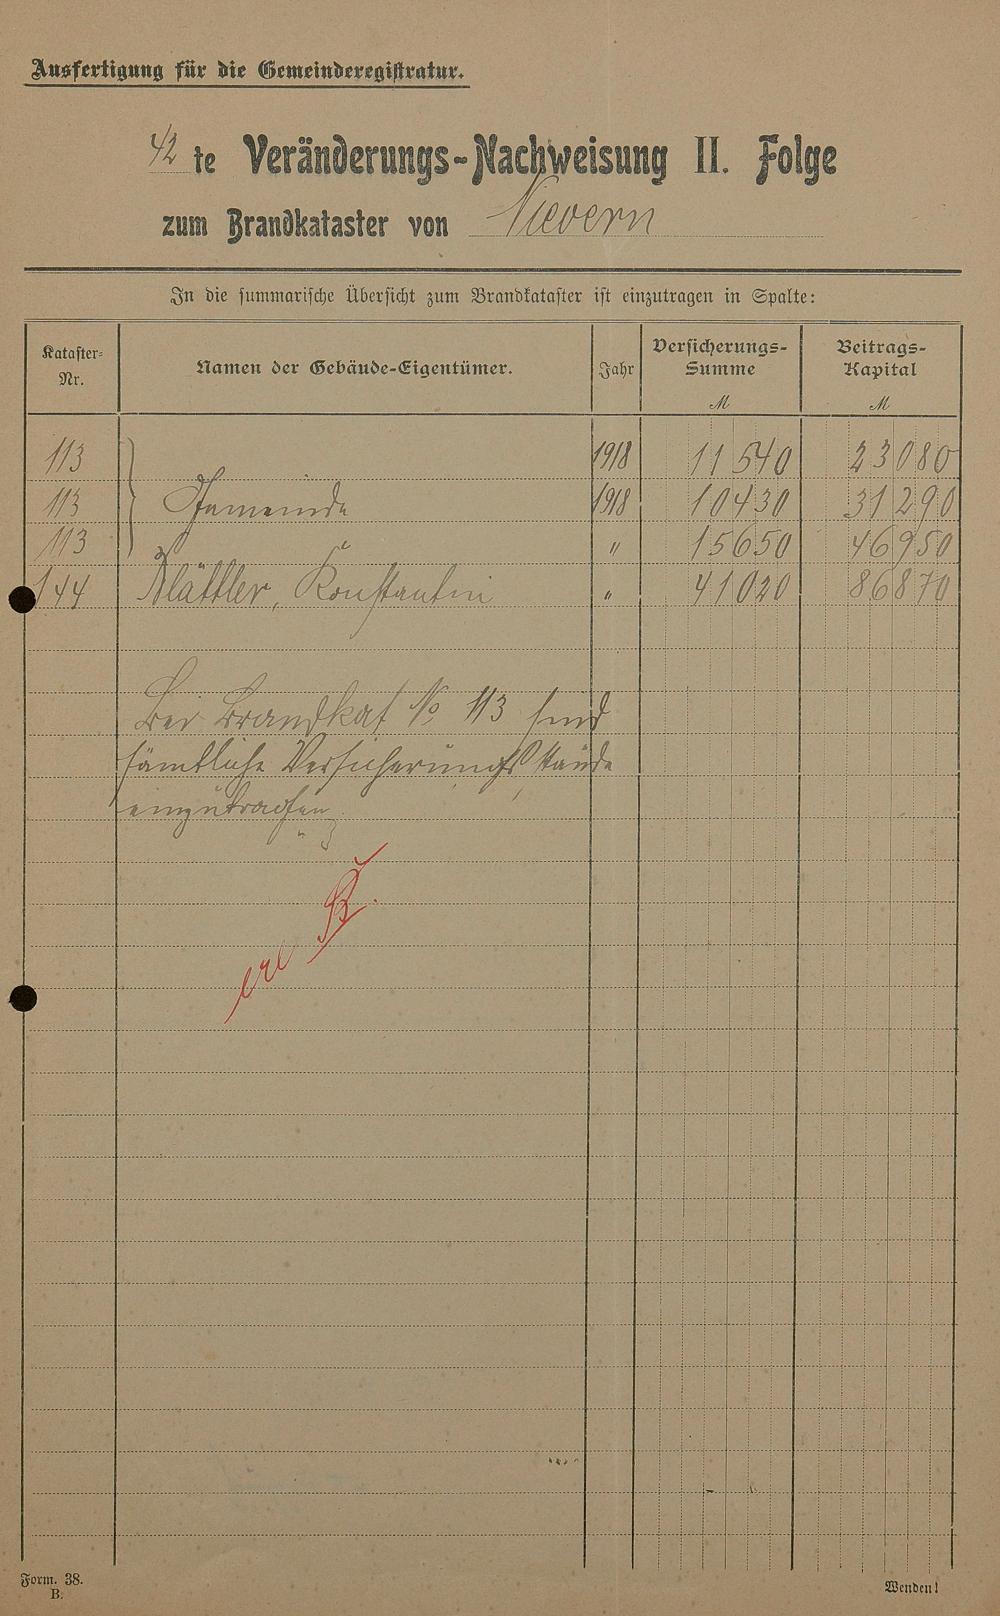 Ausfertigung für die Gemeinderegistratur.
42 te Veränderungs-Nachweisung II. Folge
zum Brandkataster von Nievern
In die summarische Übersicht zum Brandkataster ist einzutragen in Spalte:
Kataster-Nr. Namen der Gebäude-Eigentümer. Jahr Versicherungs-Summe M Beitrags-Kapital M
113 1918 11540 23080
113 Gemeinde 1918 10430 31290
113 " 15650 46950
144 Blättler, Konstantin " 41020 86870
Bei Brandkat No 113 sind
sämtliche Versicherungsstände
einzutragen
erl
Form. 38.
B.
Wenden!